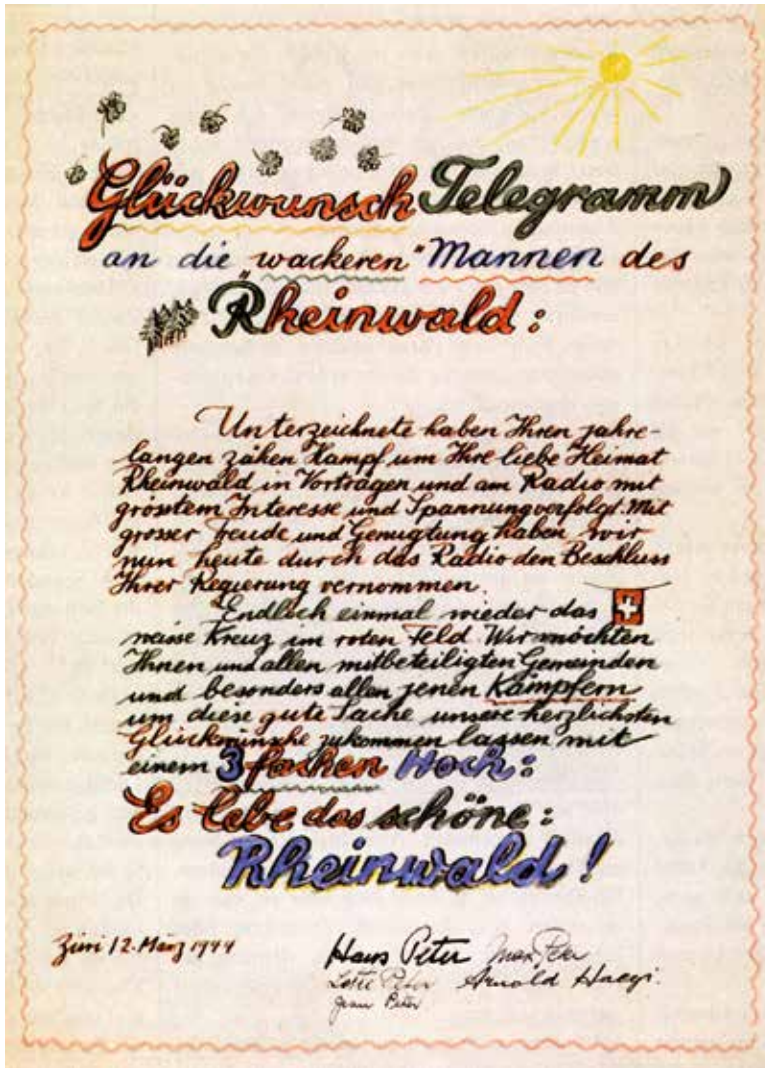 Glückwunsch Telegramm
an die "wackeren" Mannen des
Rheinwald:
Unterzeichnete haben Ihren jahre-
langen zähen Kampf um Ihre liebe Heimat
Rheinwald in Vorträgen und am Radio mit
grösstem Interesse und Spannung verfolgt. Mit
grosser Freude und Genugtung haben wir
nun heute durch das Radio den Beschluss
Ihrer Regierung vernommen.
Endlich einmal wieder das
weisse Kreuz im roten Feld. Wir möchten
Ihnen und allen mitbeteiligten Gemeinden
und besonders allen jenen Kämpfern
um diese gute Sache unsere herzlichsten
Glückwünsche zukommen lassen mit
einem 3 fachen Hoch:
Es lebe das schöne:
Rheinwald!
Züri 12. März 1944
Hans Peter Max Peter
Lotte Peter Arnold Haegi.
Jean Peter